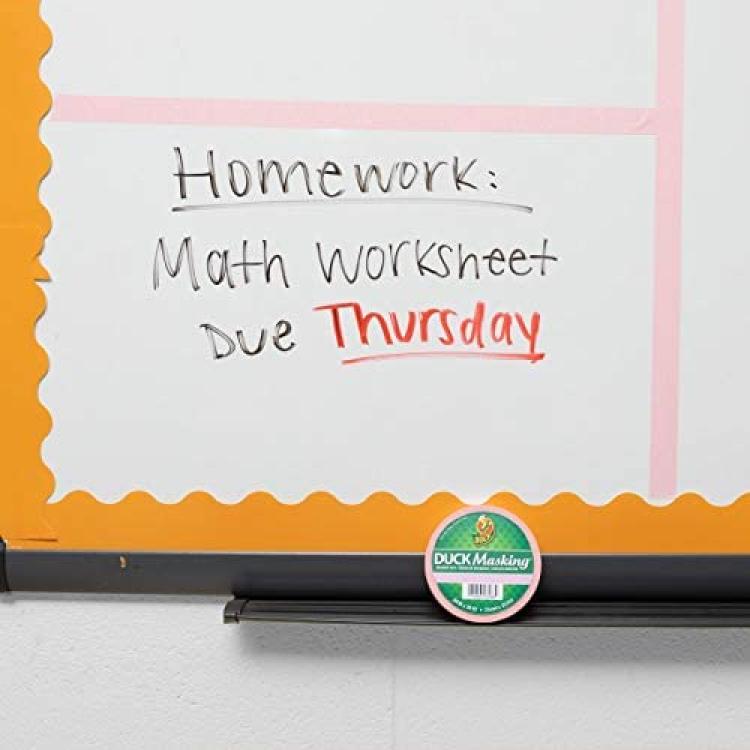 Homework:
Math Worksheet
Due Thursday
DUCK Masking